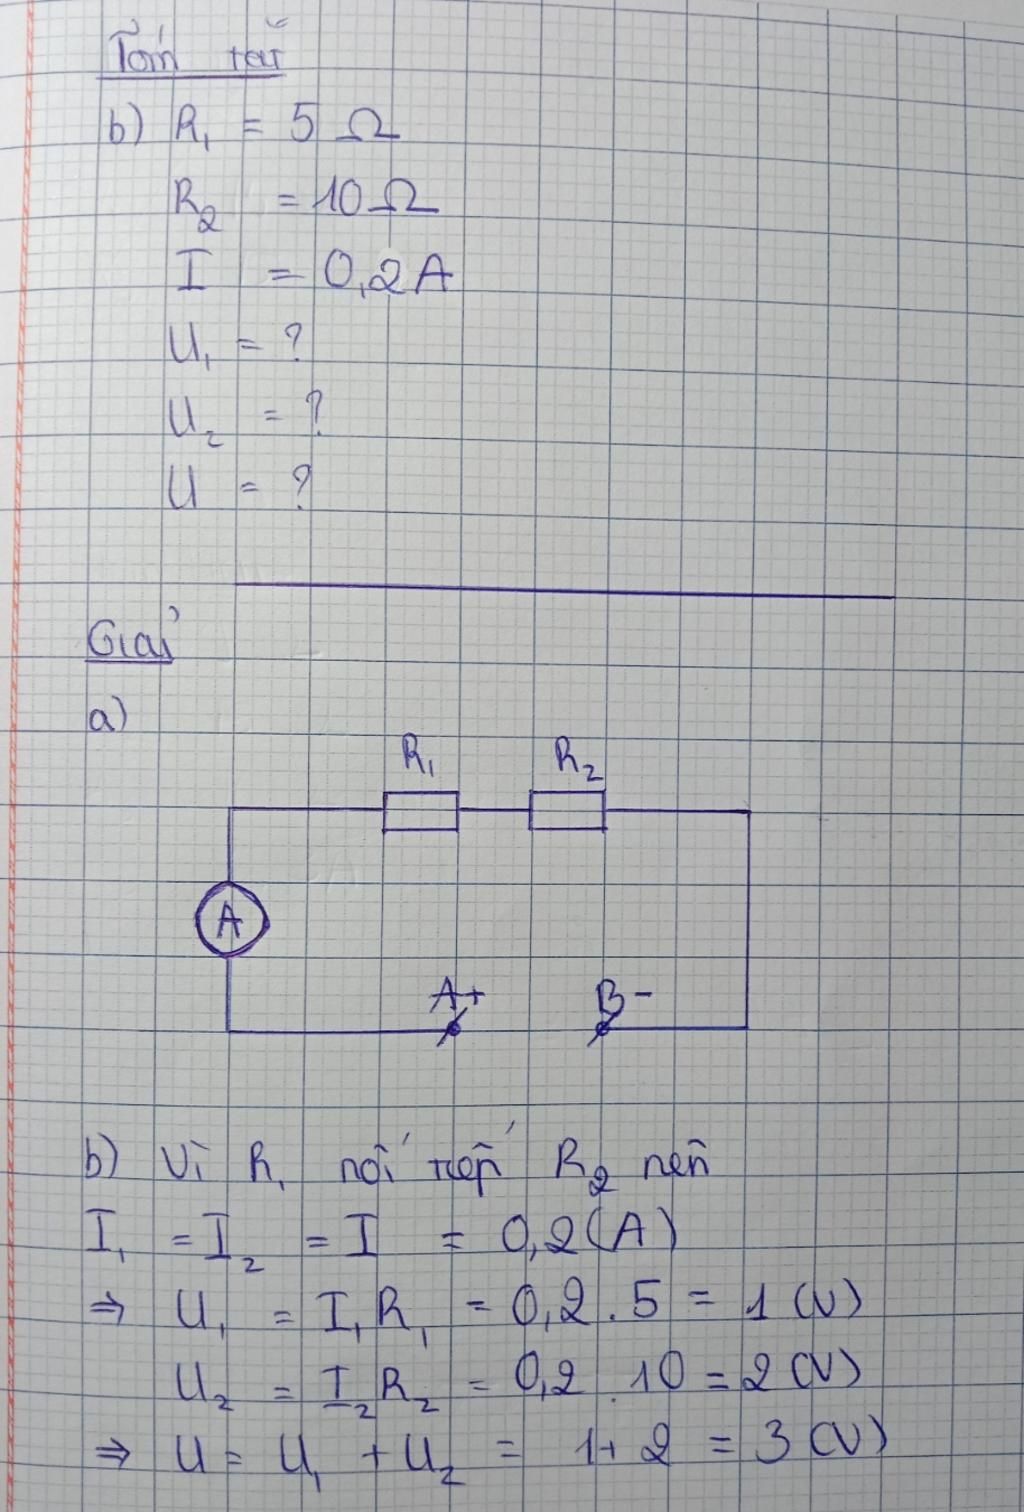 Tóm tắt
b) R₁ = 5 Ω
R₂ = 10 Ω
I = 0,2 A
U₁ = ?
U₂ = ?
U = ?
Giải
a)
R₁ R₂
A
A+ B-
b) Vì R₁ nối tiếp R₂ nên
I₁ = I₂ = I = 0,2 (A)
⇒ U₁ = I₁R₁ = 0,2 . 5 = 1 (V)
U₂ = I₂R₂ = 0,2 . 10 = 2 (V)
⇒ U = U₁ + U₂ = 1 + 2 = 3 (V)